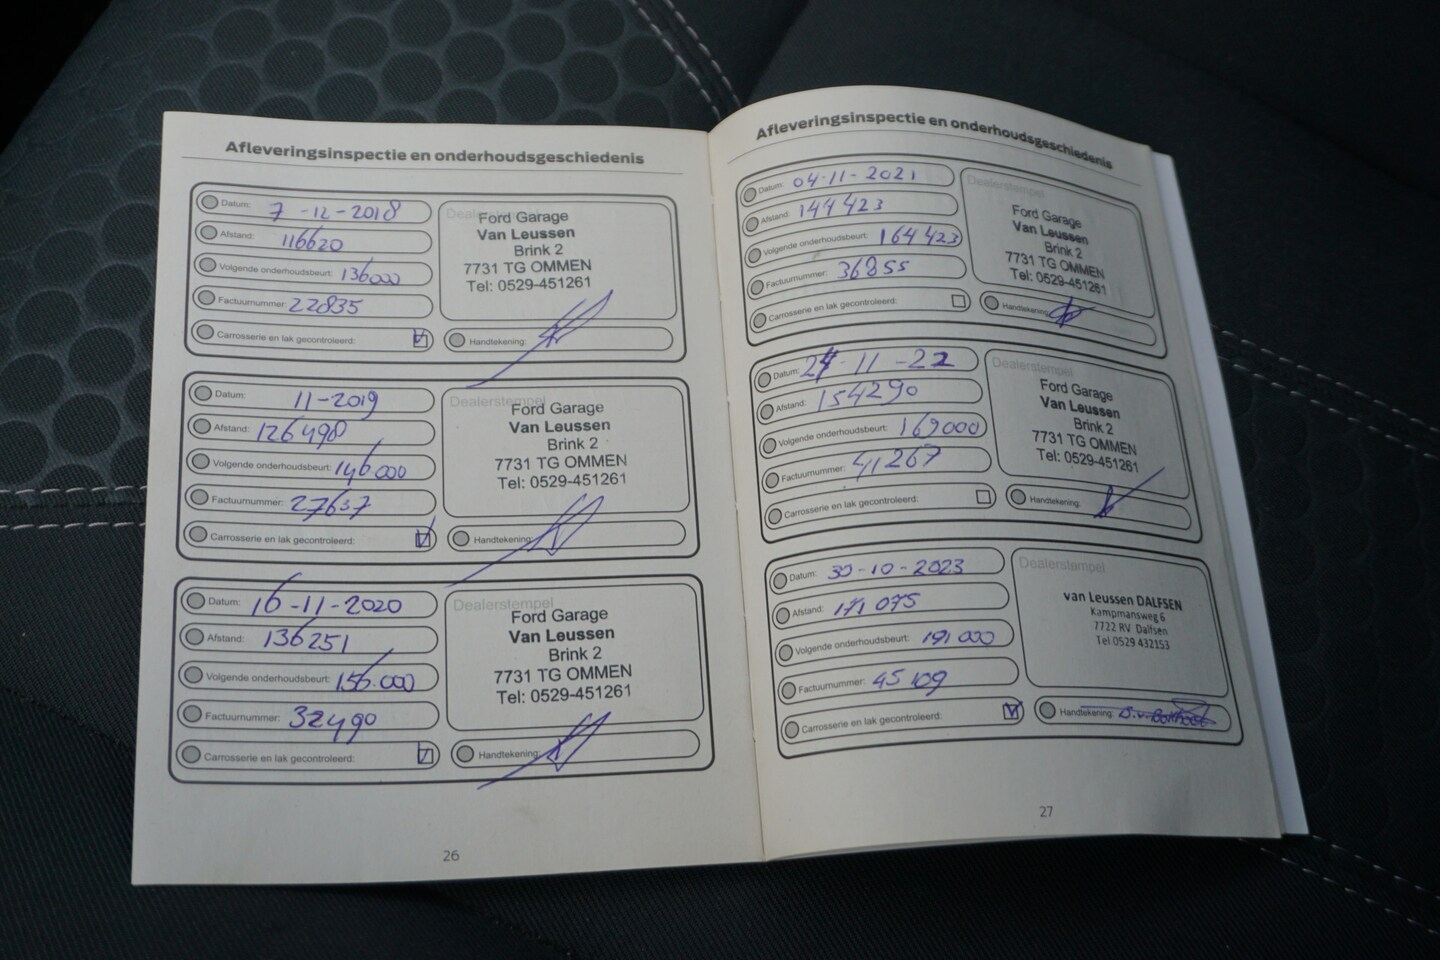 Afleveringsinspectie en onderhoudsgeschiedenis
Datum: 7-12-2018
Afstand: 116620
Volgende onderhoudsbeurt: 136000
Factuurnummer: 22835
Carrosserie en lak gecontroleerd:
Dealerstempel
Ford Garage
Van Leussen
Brink 2
7731 TG OMMEN
Tel: 0529-451261
Handtekening:
Datum: 11-2019
Afstand: 126498
Volgende onderhoudsbeurt: 146.000
Factuurnummer: 27637
Carrosserie en lak gecontroleerd:
Dealerstempel
Ford Garage
Van Leussen
Brink 2
7731 TG OMMEN
Tel: 0529-451261
Handtekening:
Datum: 16-11-2020
Afstand: 136251
Volgende onderhoudsbeurt: 156.000
Factuurnummer: 32490
Carrosserie en lak gecontroleerd:
Dealerstempel
Ford Garage
Van Leussen
Brink 2
7731 TG OMMEN
Tel: 0529-451261
Handtekening:
26
Afleveringsinspectie en onderhoudsgeschiedenis
Datum: 04-11-2021
Afstand: 144423
Volgende onderhoudsbeurt: 164423
Factuurnummer: 36855
Carrosserie en lak gecontroleerd:
Dealerstempel
Ford Garage
Van Leussen
Brink 2
7731 TG OMMEN
Tel: 0529-451261
Handtekening:
Datum: 24-11-22
Afstand: 154290
Volgende onderhoudsbeurt: 169000
Factuurnummer: 41267
Carrosserie en lak gecontroleerd:
Dealerstempel
Ford Garage
Van Leussen
Brink 2
7731 TG OMMEN
Tel: 0529-451261
Handtekening:
Datum: 30-10-2023
Afstand: 171075
Volgende onderhoudsbeurt: 191000
Factuurnummer: 45109
Carrosserie en lak gecontroleerd:
Dealerstempel
van Leussen DALFSEN
Kampmansweg 6
7722 RV Dalfsen
Tel.0529 432153
Handtekening:
27